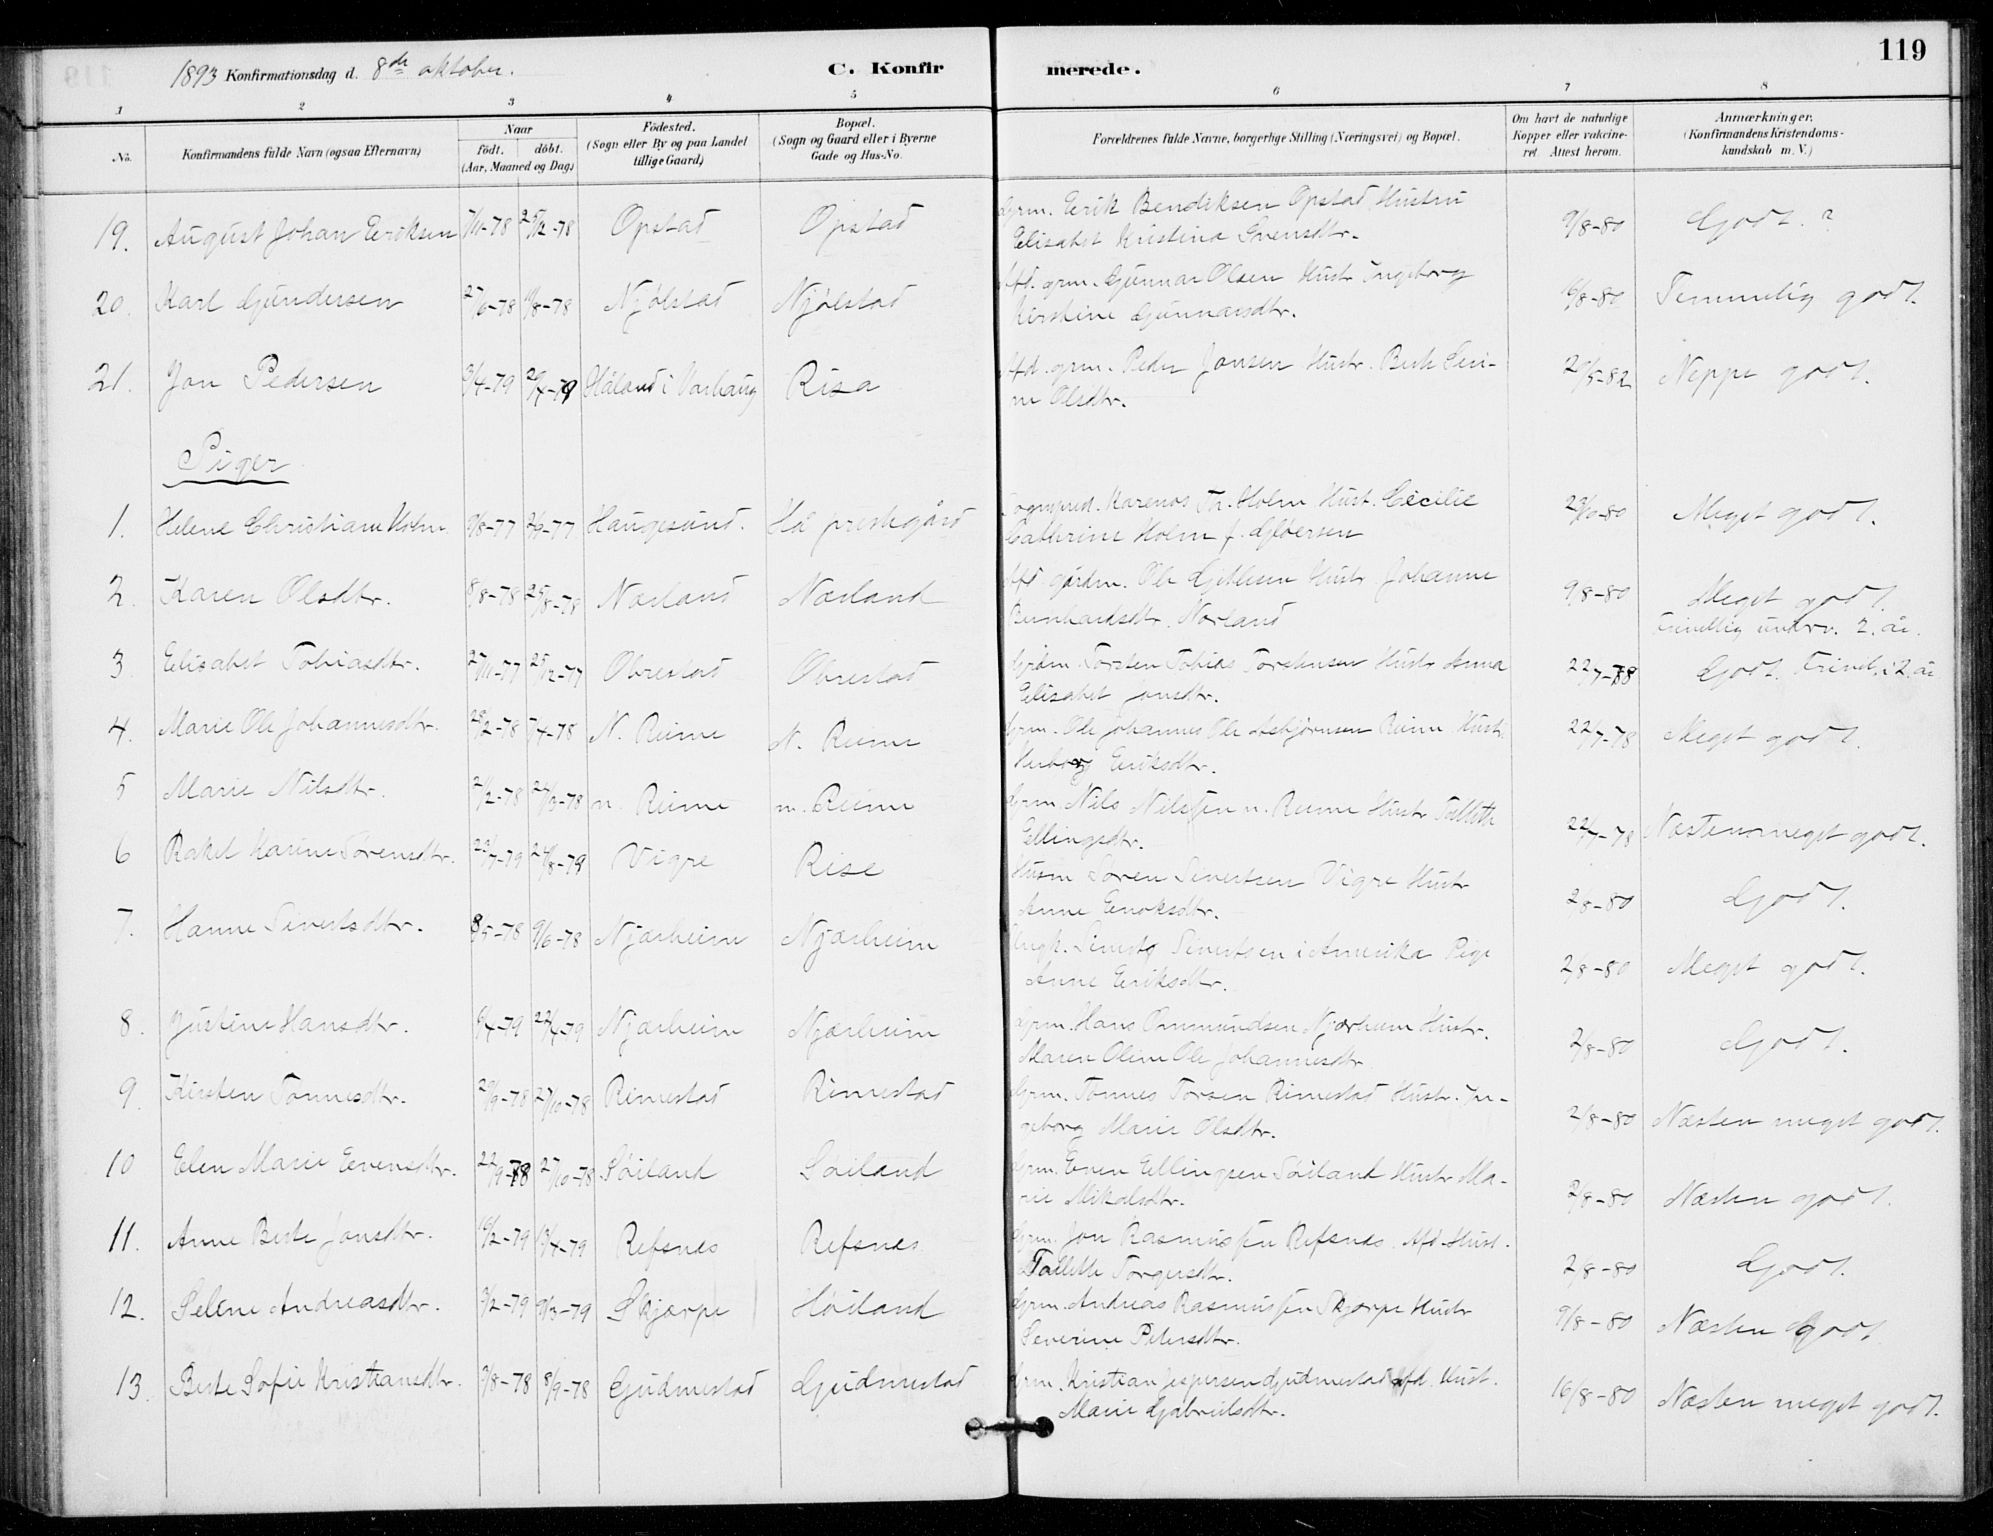 1893 Konfirmationsdag d. 8de oktober. C. Konfirmerede. 119
1 2 3 4 5 6 7 8
No. Konfirmandens fulde Navn (ogsaa Efternavn) Naar födt. döbt. (Aar, Maaned og Dag) Födested. (Sogn eller By og paa Landet tillige Gaard) Bopæl. (Sogn og Gaard eller i Byerne Gade og Hus-No. Forældrenes fulde Navne, borgerlige Stilling (Næringsvei) og Bopæl. Om havt de naturlige Kopper eller vakcineret. Attest herom. Anmærkninger. (Konfirmandens Kristendomskundskab m. V.)
19. August Johan Eriksen 7/11-78 25/12-78 Opstad Opstad Grm. Erik Bendiksen Opstad Hustru
Elisabet Kristina Svensdtr. 9/8-80 Godt. ?
20. Karl Gundersen 27/6-78 11/8-78 Njølstad Njølstad Afd. grm. Gunnar Olsen Hustr. Ingeborg
Kirstine Gunnarsdtr. 16/8-80 Temmelig godt.
21. Jon Pedersen 3/4-79 20/4-79 Håland i Varhaug Risa Afd. grm. Peder Jonsen Hustr. Berte Seri-
ne Olsdtr. 20/5-82 Neppe godt.
Piger
1. Helene Christiane Holm 9/8-77 2/9-77 Haugesund. Hå prestegård Sognepred. Karenos Th. Holm Hust. Cecilie
Cathrine Holm f. 23/10-80 Meget godt.
2. Karen Olsdtr. 8/8-78 25/8-78 Nærland Nærland Afd. gårdm. Ole Gitlesen Hustr. Johanne
Bernhardsdtr. Nærland 9/8-80 Meget godt.
Frivillig underv. 2. år.
3 Elisabet Tobiasdtr. 27/11-77 25/12-77 Obrestad Obrestad Grdm. Torsten Tobias Torstensen Hustr. Anna
Elisabet Jonsdtr. 22/7-78 Godt. Frivil. i 2. år
4. Marie Ole Johannesdtr. 28/2-78 7/4-78 N. Reime N. Reime Grm. Ole Johannes Ole Asbjørnsen Reime Hustr.
Herborg Eriksdtr. 22/7-78 Meget godt.
5 Marie Nilsdtr. 21/2-78 24/3-78 n. Reime n. Reime Grm. Nils Nilssen n. Reime Hustr. Tallette
Ellingsdtr. 22/7-78 Næsten meget godt.
6 Rakel Karine Sørensdtr. 22/7-79 24/8-79 Vigre Rise Husm Søren Sivertsen Vigre Hustr
Anne Enoksdtr. 2/8-80 Godt.
7. Hanne Sivertsdtr. 8/5-78 9/6-78 Njærheim Njærheim Ungk. Sivert Sivertsen i Amerika Pige
Anne Eriksdtr. 2/8-80 Meget godt.
8. Justine Hansdtr. 6/4-79 27/4-79 Njærheim Njærheim Grm. Hans Ommundsen Njærheim Hustr.
Maren Oline Ole Johannesdtr. 2/8-80 Godt.
9. Kirsten Tønnesdtr. 20/9-78 27/10-78 Rimestad Rimestad Grm. Tønnes Torsen Rimestad Hustr. In-
geborg Marie Olsdtr. 2/8-80 Næsten meget godt.
10 Elen Marie Evensdtr. 22/9-78 27/10-78 Søiland Søiland Grm. Even Ellingsen Søiland Hustr. Ma-
rie Mikalsdtr. 2/8-80 Næsten godt.
11. Anne Berte Jonsdtr. 16/2-79 13/4-79 Refsnes Refsnes Grm. Jon Rasmussen Refsnes. Afd. Hust.
Tallette Torgersdtr. 2/8-80 Godt.
12. Selene Andreasdtr. 3/2-79 9/3-79 Skjærpe Høiland Grm. Andreas Rasmussen Skjærpe Hustr
Severine Petersdtr. 9/8-80 Næsten godt
13. Berte Sofie Kristiansdtr. 3/8-78 8/9-78 Gudmestad Gudmestad Grm. Kristian Jespersen Gudmestad afd. Hust.
Marie Gabrielsdtr. 16/8-80 Næsten meget godt.